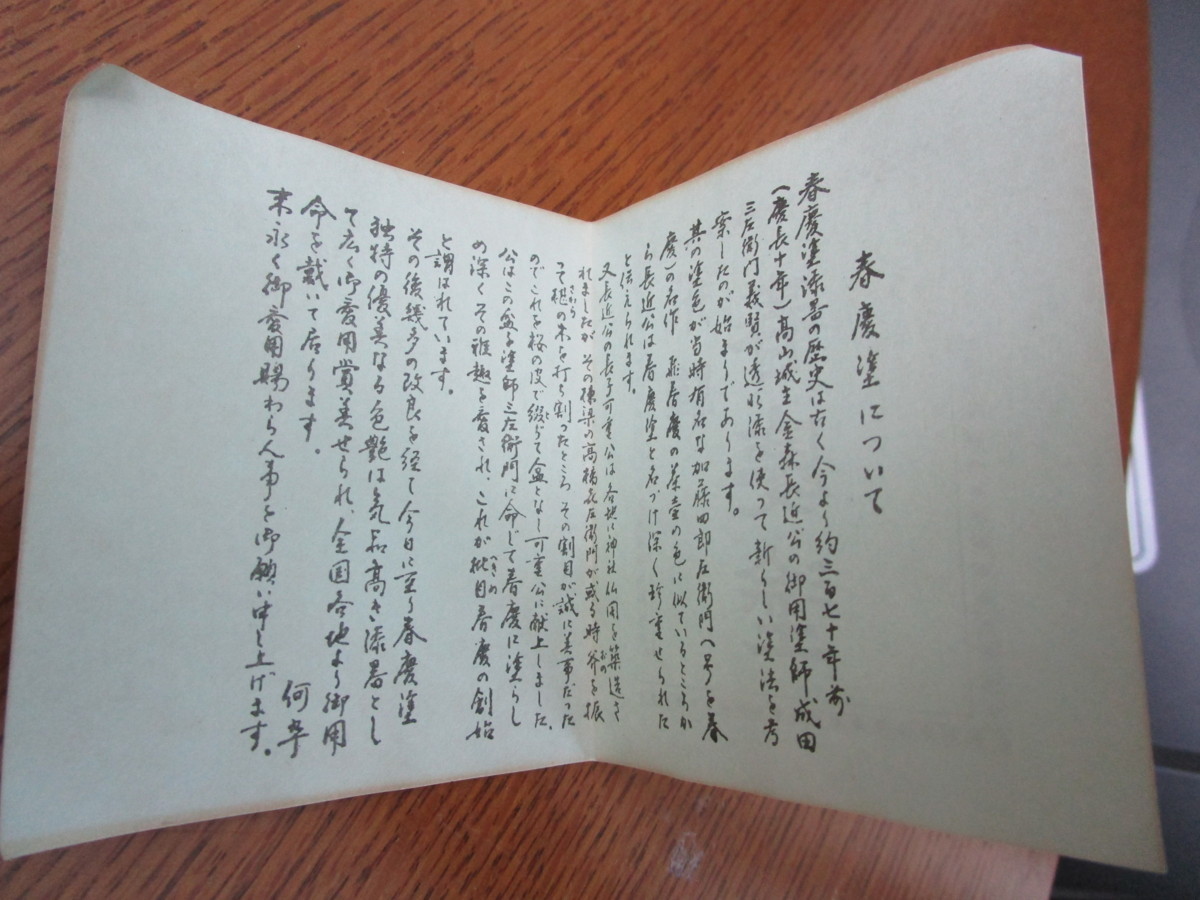 春慶塗について
春慶塗漆器の歴史は古く今より約三百七十年前
(慶長十年)高山城主金森長近公の御用塗師成田
三左衛門義賢が透漆を使って新らしい塗法を考
案したのが始まりであります。
其の塗色が当時有名な加藤四郎左衛門(号を春
慶)の名作 飛春慶の茶壺の色に似ているところか
ら長近公は春慶塗と名づけ深く珍重せられた
と伝えられます。
又長近公の長子可重公は各地に神社仏閣を築造さ
れましたが その棟梁の高橋喜左衛門が或る時斧を振
って椹の木を打ち割ったところ その割目が誠に美事だった
のでこれを桜の皮で綴って盆となし可重公に献上しました、
公はこの盆を塗師三左衛門に命じて春慶に塗らし
め深くその雅趣を愛され、これが批目春慶の創始
と謂はれています。
その後幾多の改良を経て今日に至り春慶塗
独特の優美なる色艶は気品高き漆器とし
て広く御愛用賞美せられ、全国各地より御用
命を戴いて居ります。
何卒
末永く御愛用賜わらん事を御願い申し上げます。